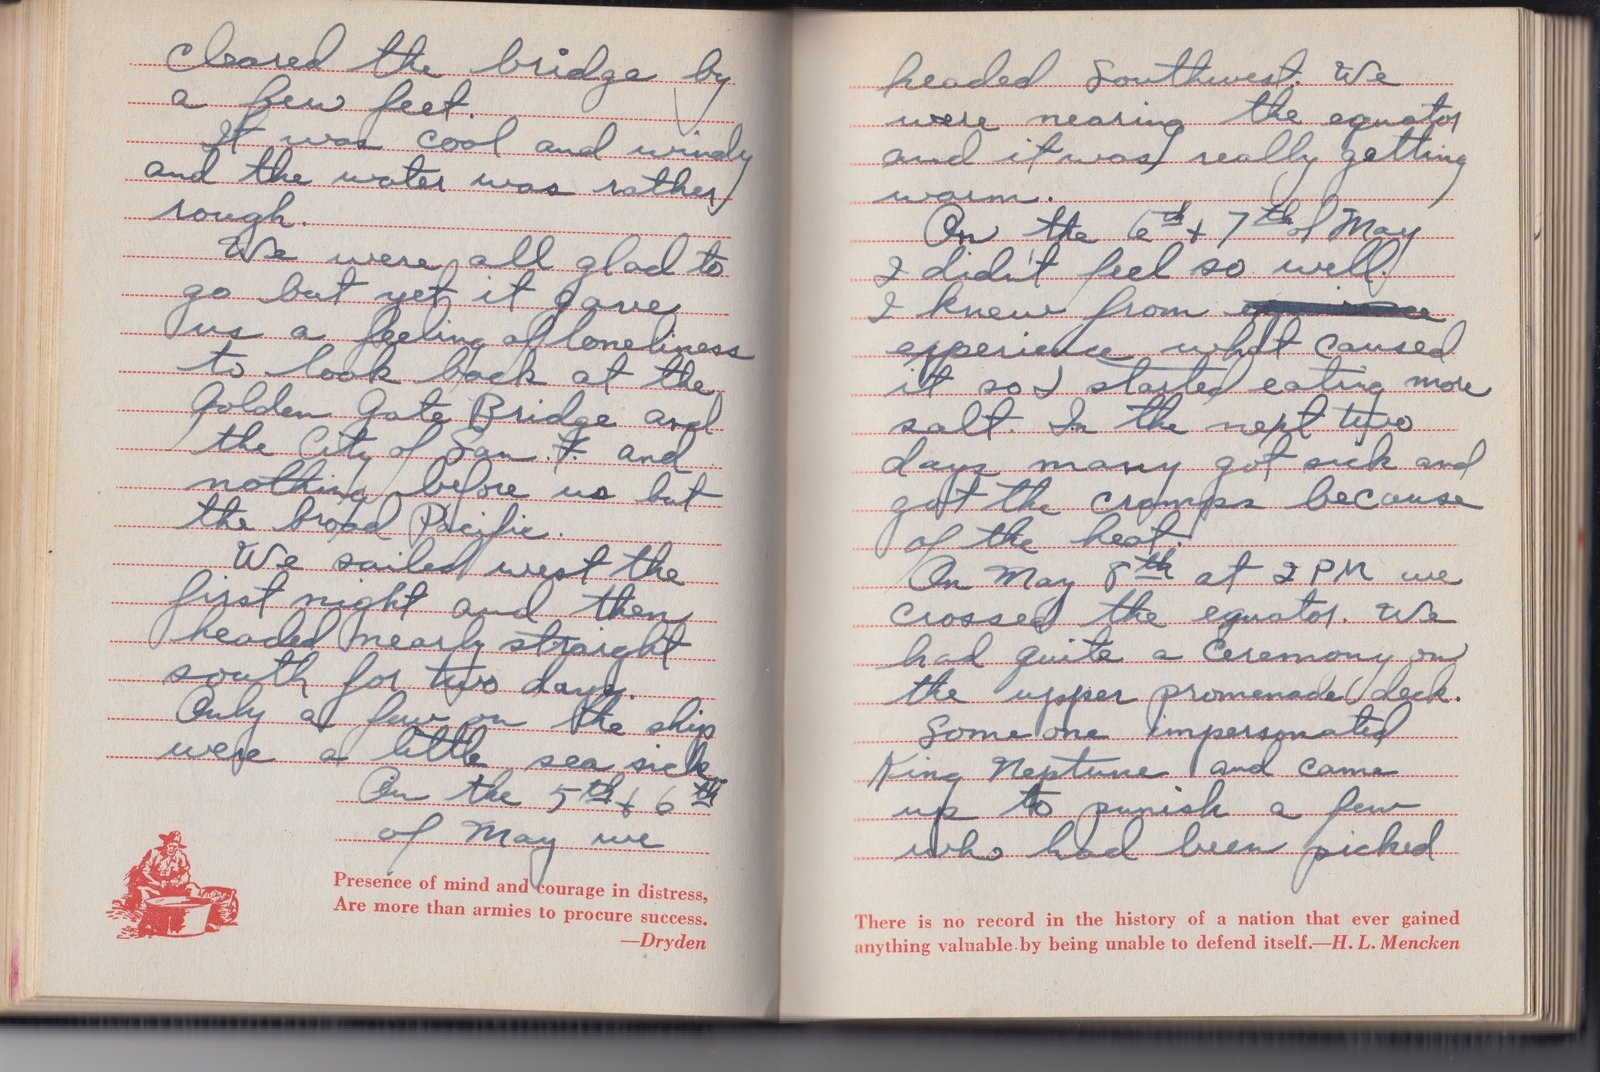 cleared the bridge by
a few feet.
It was cool and windy
and the water was rather
rough.
We were all glad to
go but yet it gave
us a feeling of loneliness
to look back at the
Golden Gate Bridge and
the City of San. F. and
nothing before us but
the broad Pacific.
We sailed west the
first night and then
headed nearly straight
south for two days.
Only a few on the ship
were a little sea sick.
On the 5th & 6th
of May we
Presence of mind and courage in distress,
Are more than armies to procure success.
—Dryden
headed Southwest. We
were nearing the equator
and it was really getting
warm.
On the 6th & 7th of May
I didn't feel so well.
I knew from
experience what caused
it so I started eating more
salt. In the next two
days many got sick and
got the cramps because
of the heat.
On May 8th at 2 PM we
crossed the equator. We
had quite a ceremony on
the upper promenade deck.
Some one impersonated
King Neptune and came
up to punish a few
who had been picked
There is no record in the history of a nation that ever gained
anything valuable by being unable to defend itself.—H. L. Mencken